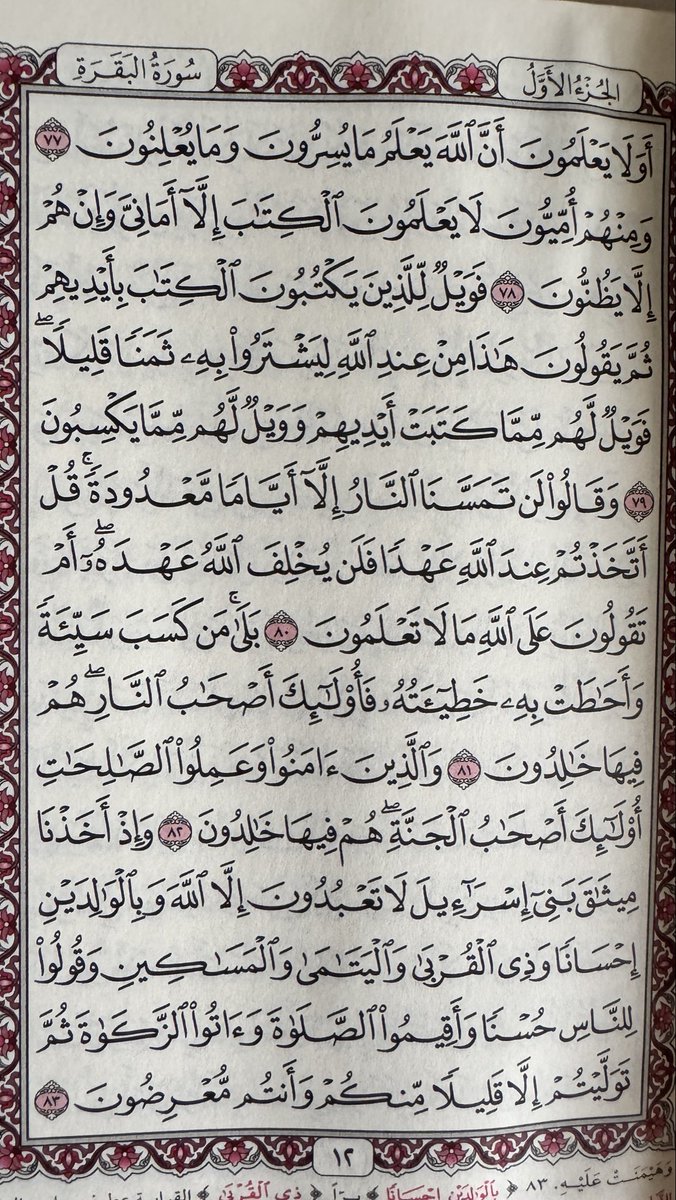 الجُزْءُ الأَوَّلُ
سُورَةُ البَقَرَةِ
أَوَلَا يَعْلَمُونَ أَنَّ ٱللَّهَ يَعْلَمُ مَا يُسِرُّونَ وَمَا يُعْلِنُونَ ٧٧
وَمِنْهُمْ أُمِّيُّونَ لَا يَعْلَمُونَ ٱلْكِتَٰبَ إِلَّآ أَمَانِىَّ وَإِنْ هُمْ
إِلَّا يَظُنُّونَ ٧٨ فَوَيْلٌ لِّلَّذِينَ يَكْتُبُونَ ٱلْكِتَٰبَ بِأَيْدِيهِمْ
ثُمَّ يَقُولُونَ هَٰذَا مِنْ عِندِ ٱللَّهِ لِيَشْتَرُوا۟ بِهِۦ ثَمَنًا قَلِيلًا ۖ
فَوَيْلٌ لَّهُم مِّمَّا كَتَبَتْ أَيْدِيهِمْ وَوَيْلٌ لَّهُم مِّمَّا يَكْسِبُونَ
٧٩ وَقَالُوا۟ لَن تَمَسَّنَا ٱلنَّارُ إِلَّآ أَيَّامًا مَّعْدُودَةً ۚ قُلْ
أَتَّخَذْتُمْ عِندَ ٱللَّهِ عَهْدًا فَلَن يُخْلِفَ ٱللَّهُ عَهْدَهُۥٓ ۖ أَمْ
تَقُولُونَ عَلَى ٱللَّهِ مَا لَا تَعْلَمُونَ ٨٠ بَلَىٰ ۚ مَن كَسَبَ سَيِّئَةً
وَأَحَٰطَتْ بِهِۦ خَطِيٓـَٔتُهُۥ فَأُو۟لَٰٓئِكَ أَصْحَٰبُ ٱلنَّارِ ۖ هُمْ
فِيهَا خَٰلِدُونَ ٨١ وَٱلَّذِينَ ءَامَنُوا۟ وَعَمِلُوا۟ ٱلصَّٰلِحَٰتِ
أُو۟لَٰٓئِكَ أَصْحَٰبُ ٱلْجَنَّةِ ۖ هُمْ فِيهَا خَٰلِدُونَ ٨٢ وَإِذْ أَخَذْنَا
مِيثَٰقَ بَنِىٓ إِسْرَٰٓءِيلَ لَا تَعْبُدُونَ إِلَّا ٱللَّهَ وَبِٱلْوَٰلِدَيْنِ
إِحْسَانًا وَذِى ٱلْقُرْبَىٰ وَٱلْيَتَٰمَىٰ وَٱلْمَسَٰكِينِ وَقُولُوا۟
لِلنَّاسِ حُسْنًا وَأَقِيمُوا۟ ٱلصَّلَوٰةَ وَءَاتُوا۟ ٱلزَّكَوٰةَ ثُمَّ
تَوَلَّيْتُمْ إِلَّا قَلِيلًا مِّنكُمْ وَأَنتُم مُّعْرِضُونَ ٨٣
١٢
وَهَيْمَنَتْ عَلَيْهِ. ٨٣ ﴿بِٱلْوَٰلِدَيْنِ إِحْسَانًا﴾ ﴿ذِي ٱلْقُرْبَىٰ﴾